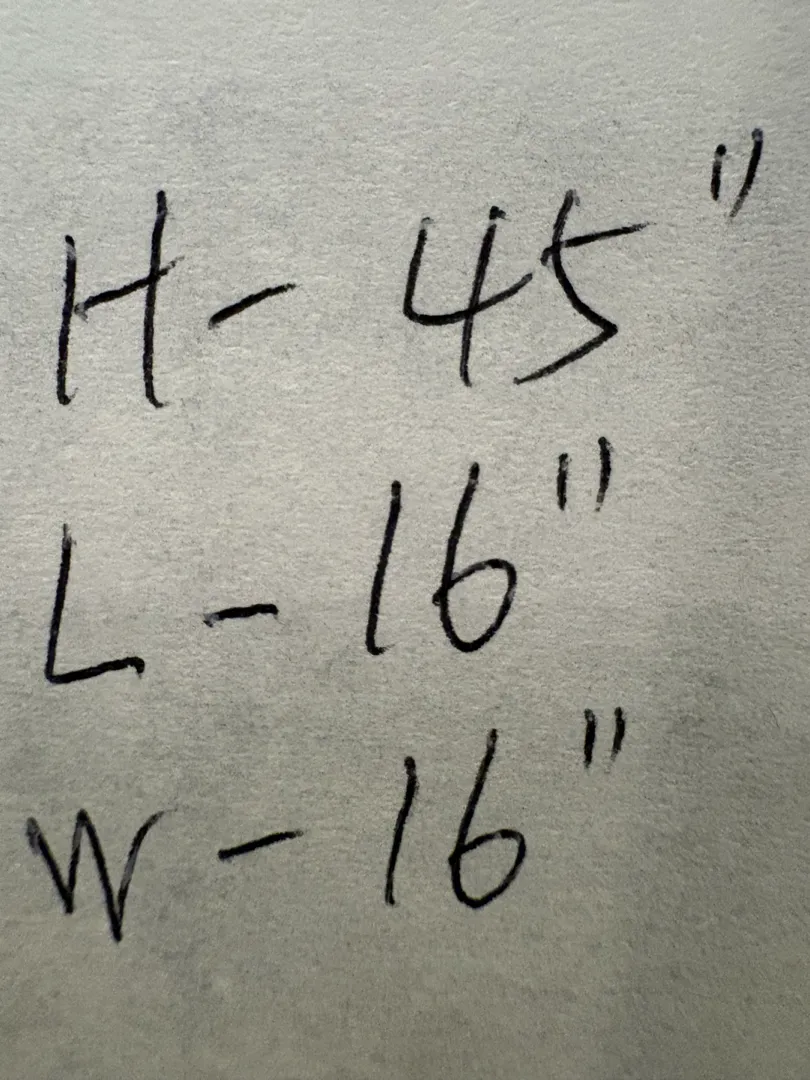 H - 45"
L - 16"
W - 16"